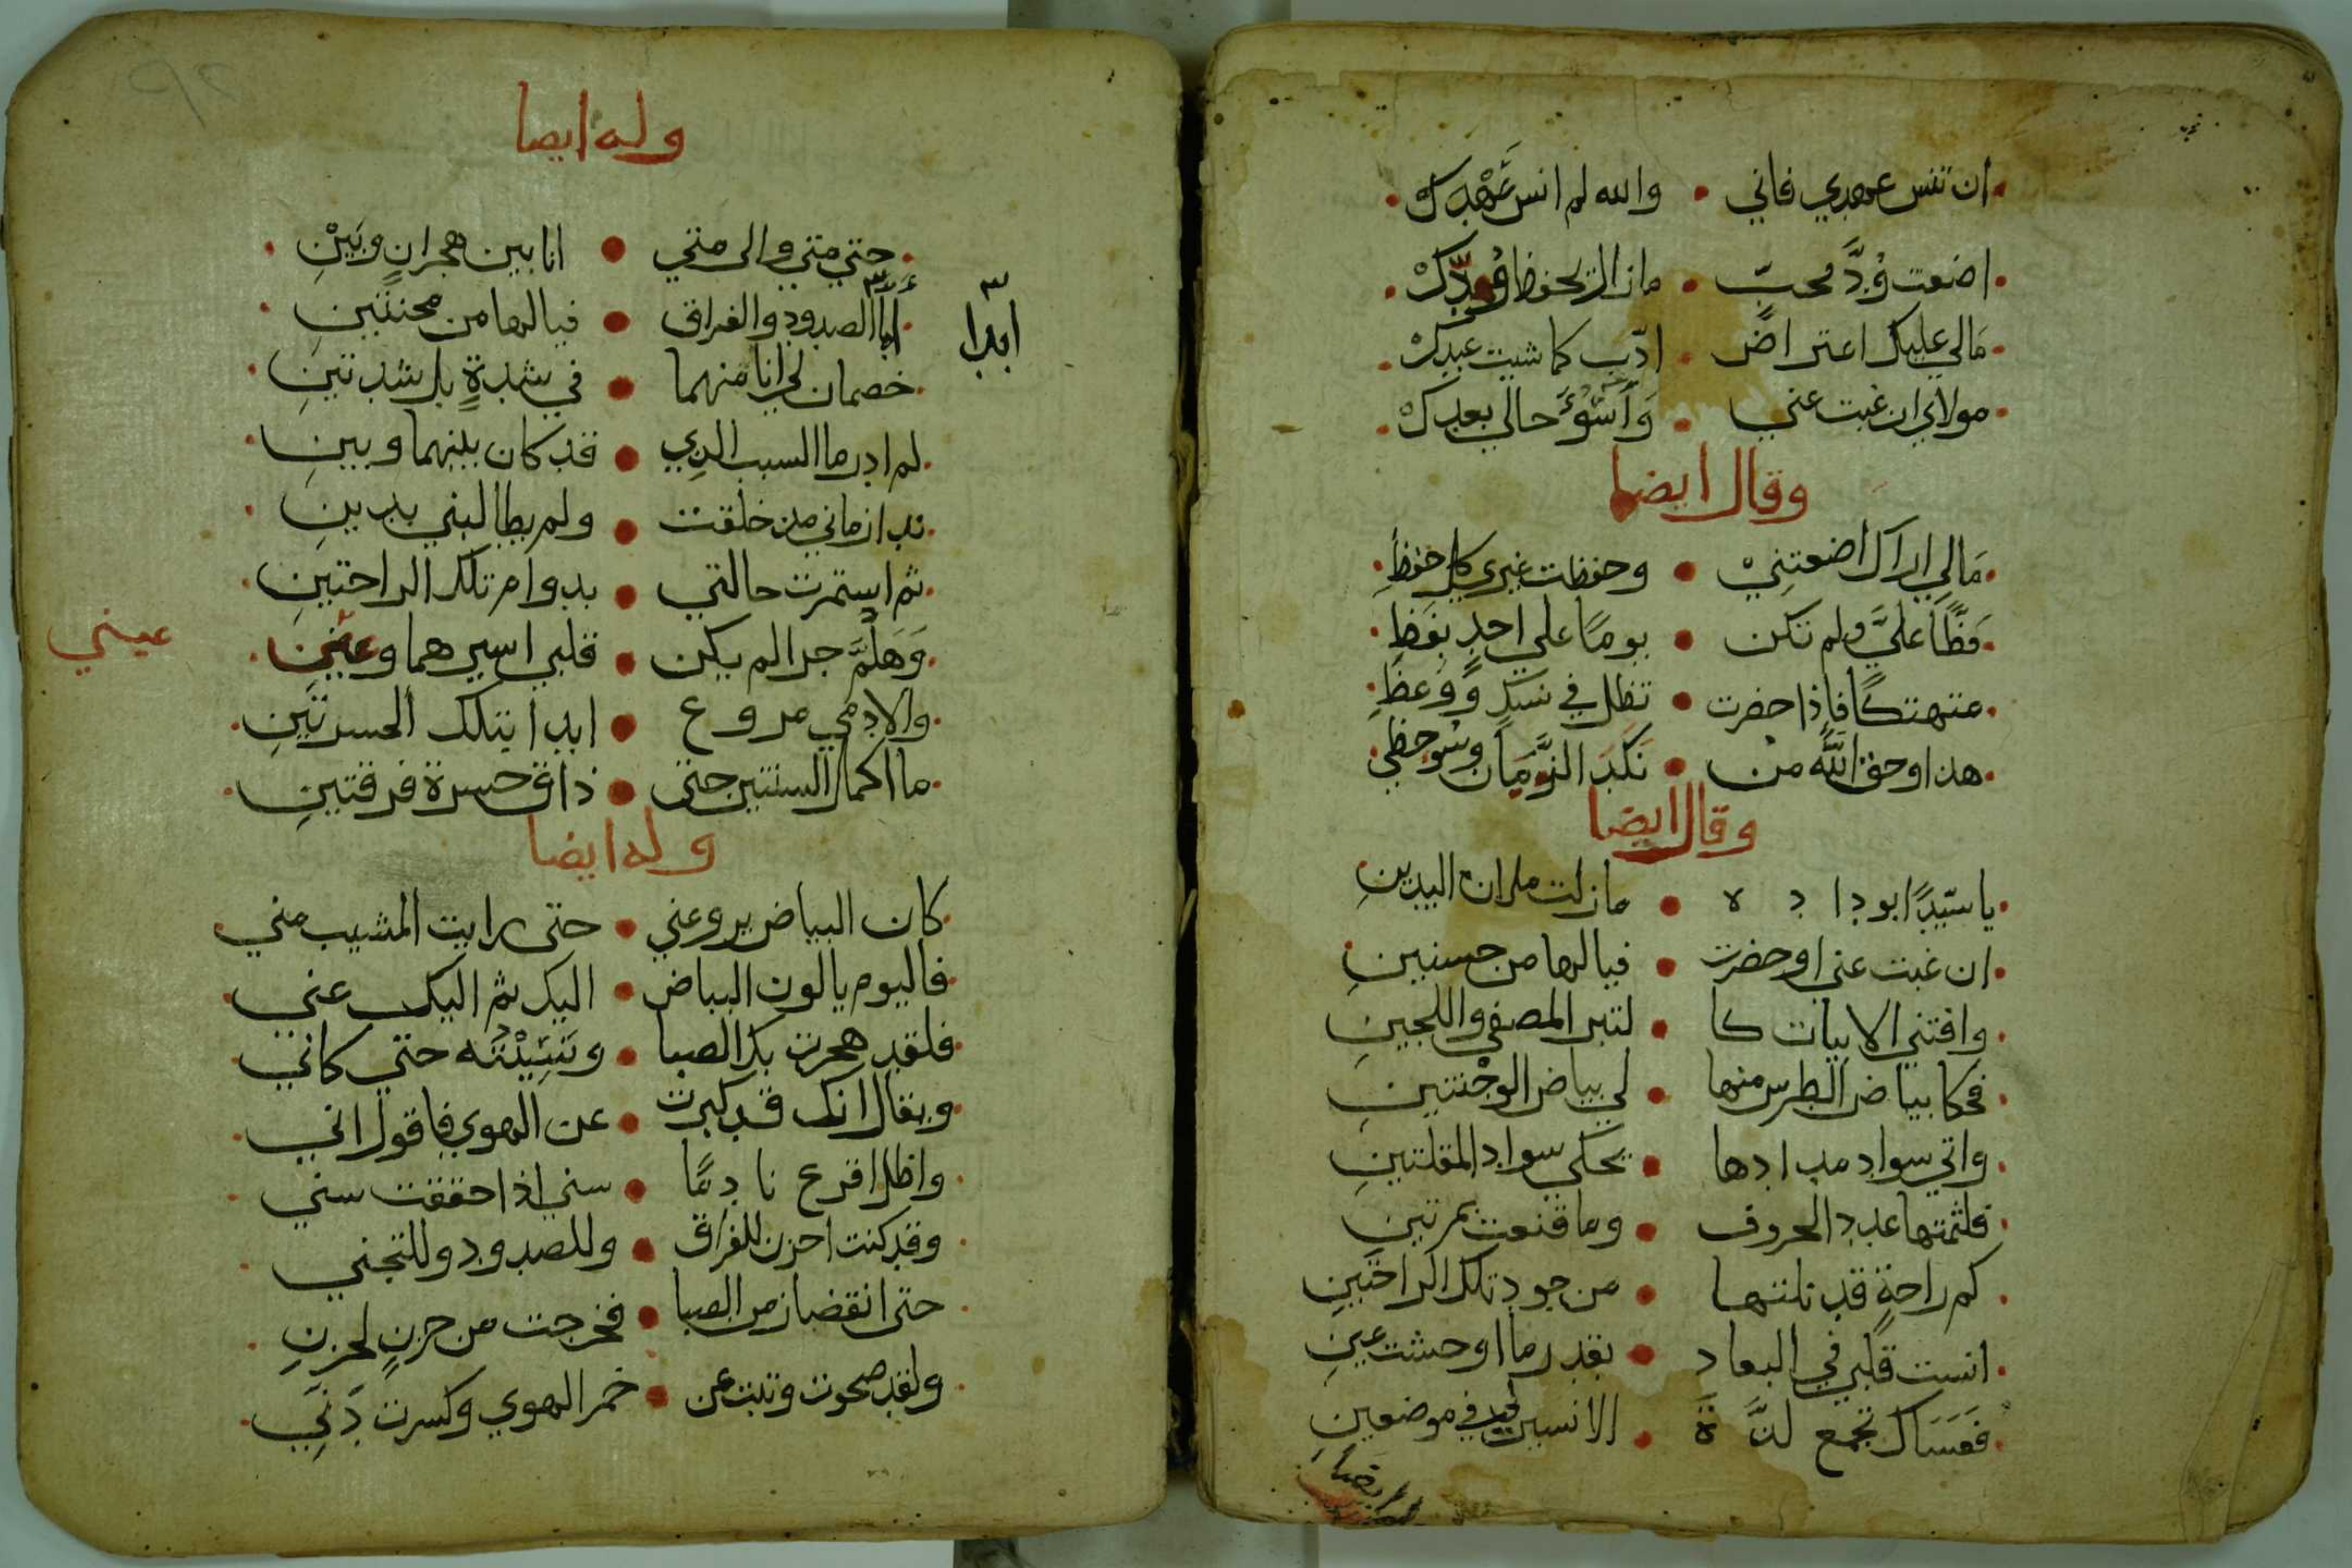 ان تنس عهدي فاني • والله لم انس عَهْدك
اضعت وُدَّ محبّ • مازال يحفظ وُدّكْ
مَالي عليك اعتراضٌ • ادّب كما شيت عبدكْ
مولاي ان غبت عني • وَاَسُوْءَ حالي بعدكْ
وقال ايضا
مَالِي اراك اضعتنِيْ • وحفظت غيري كل حفظِ
فَظًّا عليَّ ولم تكن • يومًا على احدٍ بفَظِ
متهتكًا فاذا حضرت • تظل في نسكٍ وَوَعظِ
هذا وحق اللَّه من • نَكَدَ الزَّمَان وسُوحظي
وقال ايضا
يا سيّدًا بوداده • مازلت ملان اليدينِ
ان غبت عني او حضرت • فيالها من حسنيينِ
وافتني الابيات كا • لتبر المصفي واللجينِ
فحكا بياض الطرس منها • لي بياض الوجْنتينِ
واتي سواد مدادها • يحكي سواد المقلتينِ
فلثمتها عدد الحروف • وما قنعت بمرتينِ
كم راحةٍ قد نلتها • من جود تلك الراحتَينِ
انست قلبي في البعاد • بقدر ما اوحشت عينِ
فَعَسَاك تجمع لذَّةَ • الانسين لي في موضعينِ
وله ايضا
حتي متي والى متي • انا بين هجرانٍ وبَيْنِ
أبدا الصدود والفراق • فيالها من محنتَينِ
ابدا
خصمان لي انا منهما • في شدةٍ بل شدتينِ
لم ادر ما السبب الذي • قد كان بينهما وبينِ
نداز ماني مذ خلقت • ولم يطالبني بدينِ
ثم استمرت حالتي • بدوام تلك الراحتينِ
وَهَلُمَّ جرا لم يكن • قلبي اسيرهما وعيني
عيني
والادمي مروع • ابدا بتلك الحسرتَينِ
ما اكمل السنتين حتى • ذاق حسرة فرقتينِ
وله ايضا
كان البياض يروعني • حتى رايت المشيب مني
فاليوم يا لون البياض • اليك ثم اليك عني
فلقد هجرت بك الصبا • ونَسِيْتُه حتي كاني
ويقال انك قد كبرت • عن الهوي فاقول اني
واظل اقرع نادمًا • سني اذا حققت سني
وقد كنت احزن للفراق • وللصدود وللتجني
حتى انقضا زمن الصبا • فخرجت من حزنٍ لحزنِ
ولقد صحوت وتبت عن • خمر الهوي وكسرت دَنَي